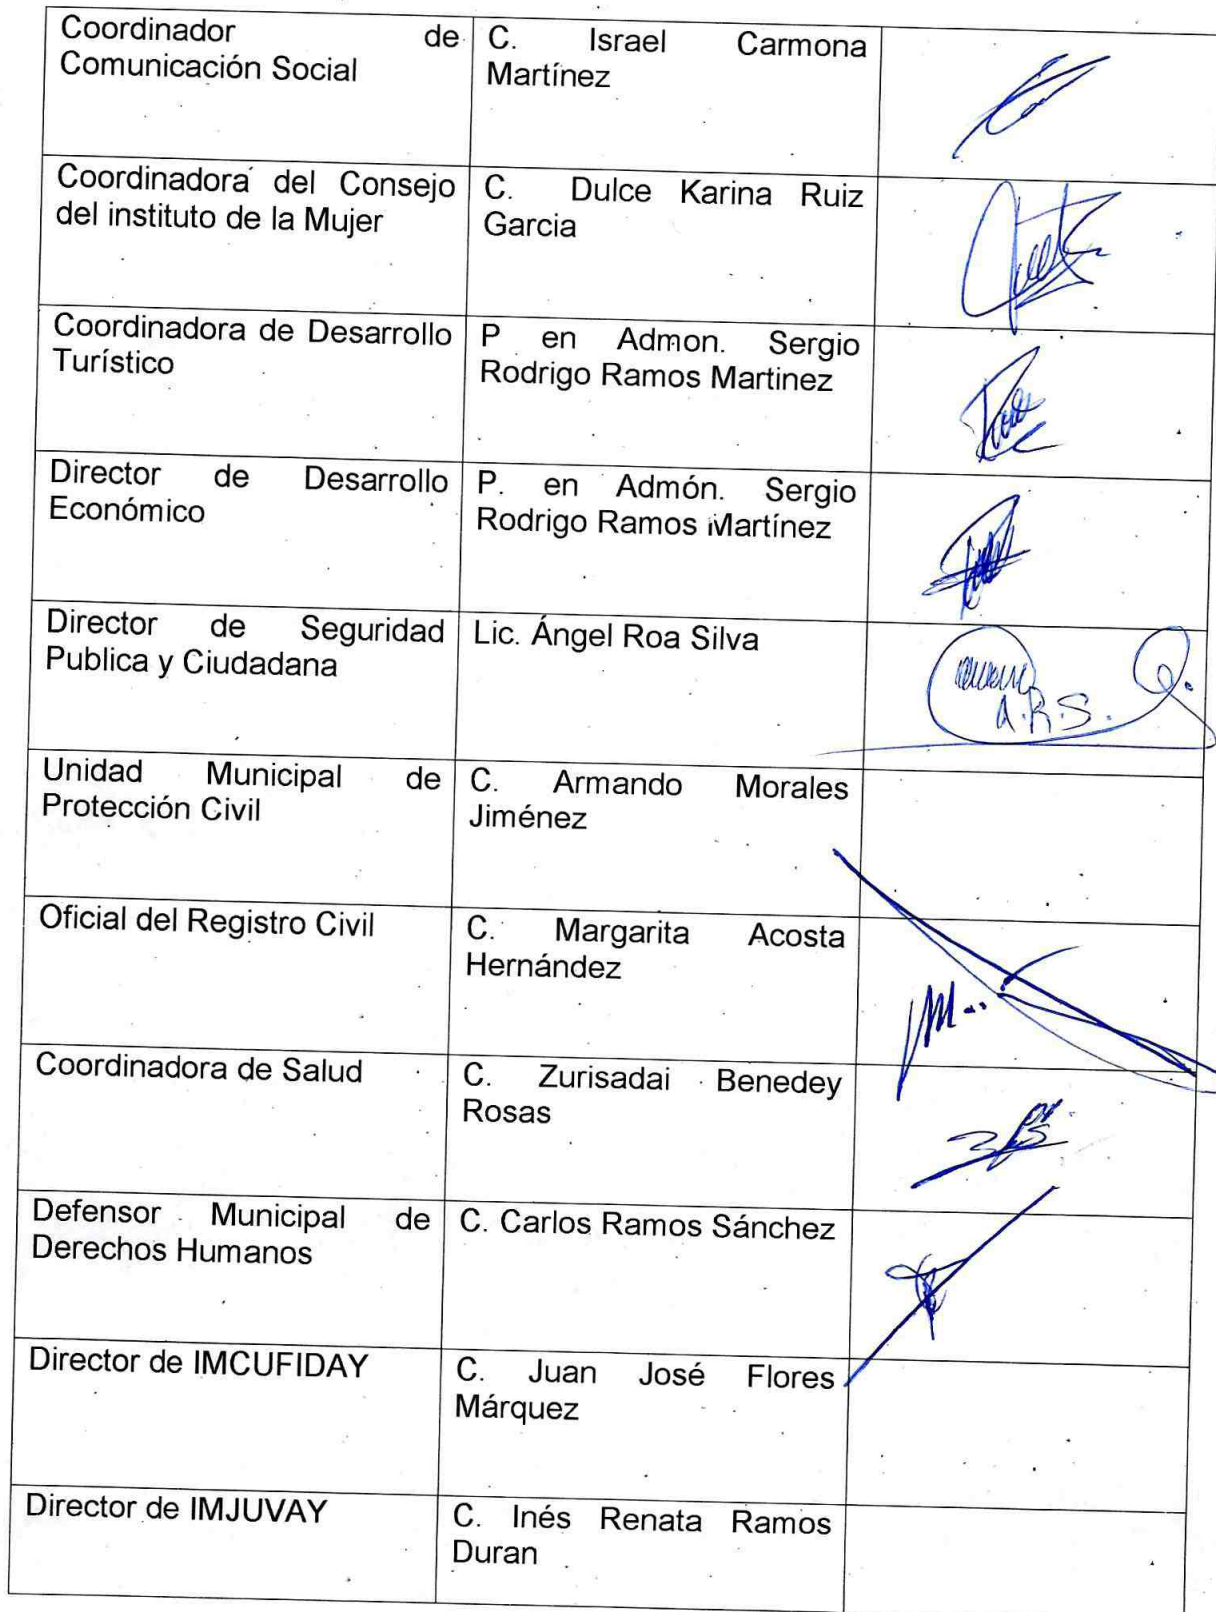 Coordinador de
Comunicación Social
C. Israel Carmona
Martínez
Coordinadora del Consejo
del instituto de la Mujer
C. Dulce Karina Ruiz
Garcia
Coordinadora de Desarrollo
Turístico
P en Admon. Sergio
Rodrigo Ramos Martinez
Director de Desarrollo
Económico
P. en Admón. Sergio
Rodrigo Ramos Martínez
Director de Seguridad
Publica y Ciudadana
Lic. Ángel Roa Silva
A.R.S.
Unidad Municipal de
Protección Civil
C. Armando Morales
Jiménez
Oficial del Registro Civil
C. Margarita Acosta
Hernández
Coordinadora de Salud
C. Zurisadai Benedey
Rosas
Defensor Municipal de
Derechos Humanos
C. Carlos Ramos Sánchez
Director de IMCUFIDAY
C. Juan José Flores
Márquez
Director de IMJUVAY
C. Inés Renata Ramos
Duran